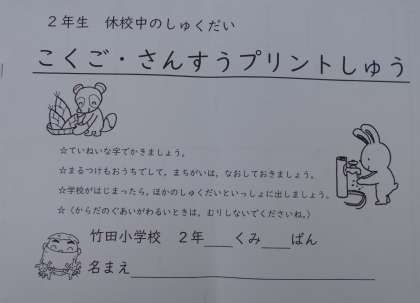 ２年生　休校中のしゅくだい
こくご・さんすうプリントしゅう
☆ていねいな字でかきましょう。
☆まるつけもおうちでして、まちがいは、なおしておきましょう。
☆学校がはじまったら、ほかのしゅくだいといっしょに出しましょう。
☆（からだのぐあいがわるいときは、むりしないでくださいね。）
竹田小学校　２年＿＿くみ＿＿ばん
名まえ＿＿＿＿＿＿＿＿＿＿＿＿